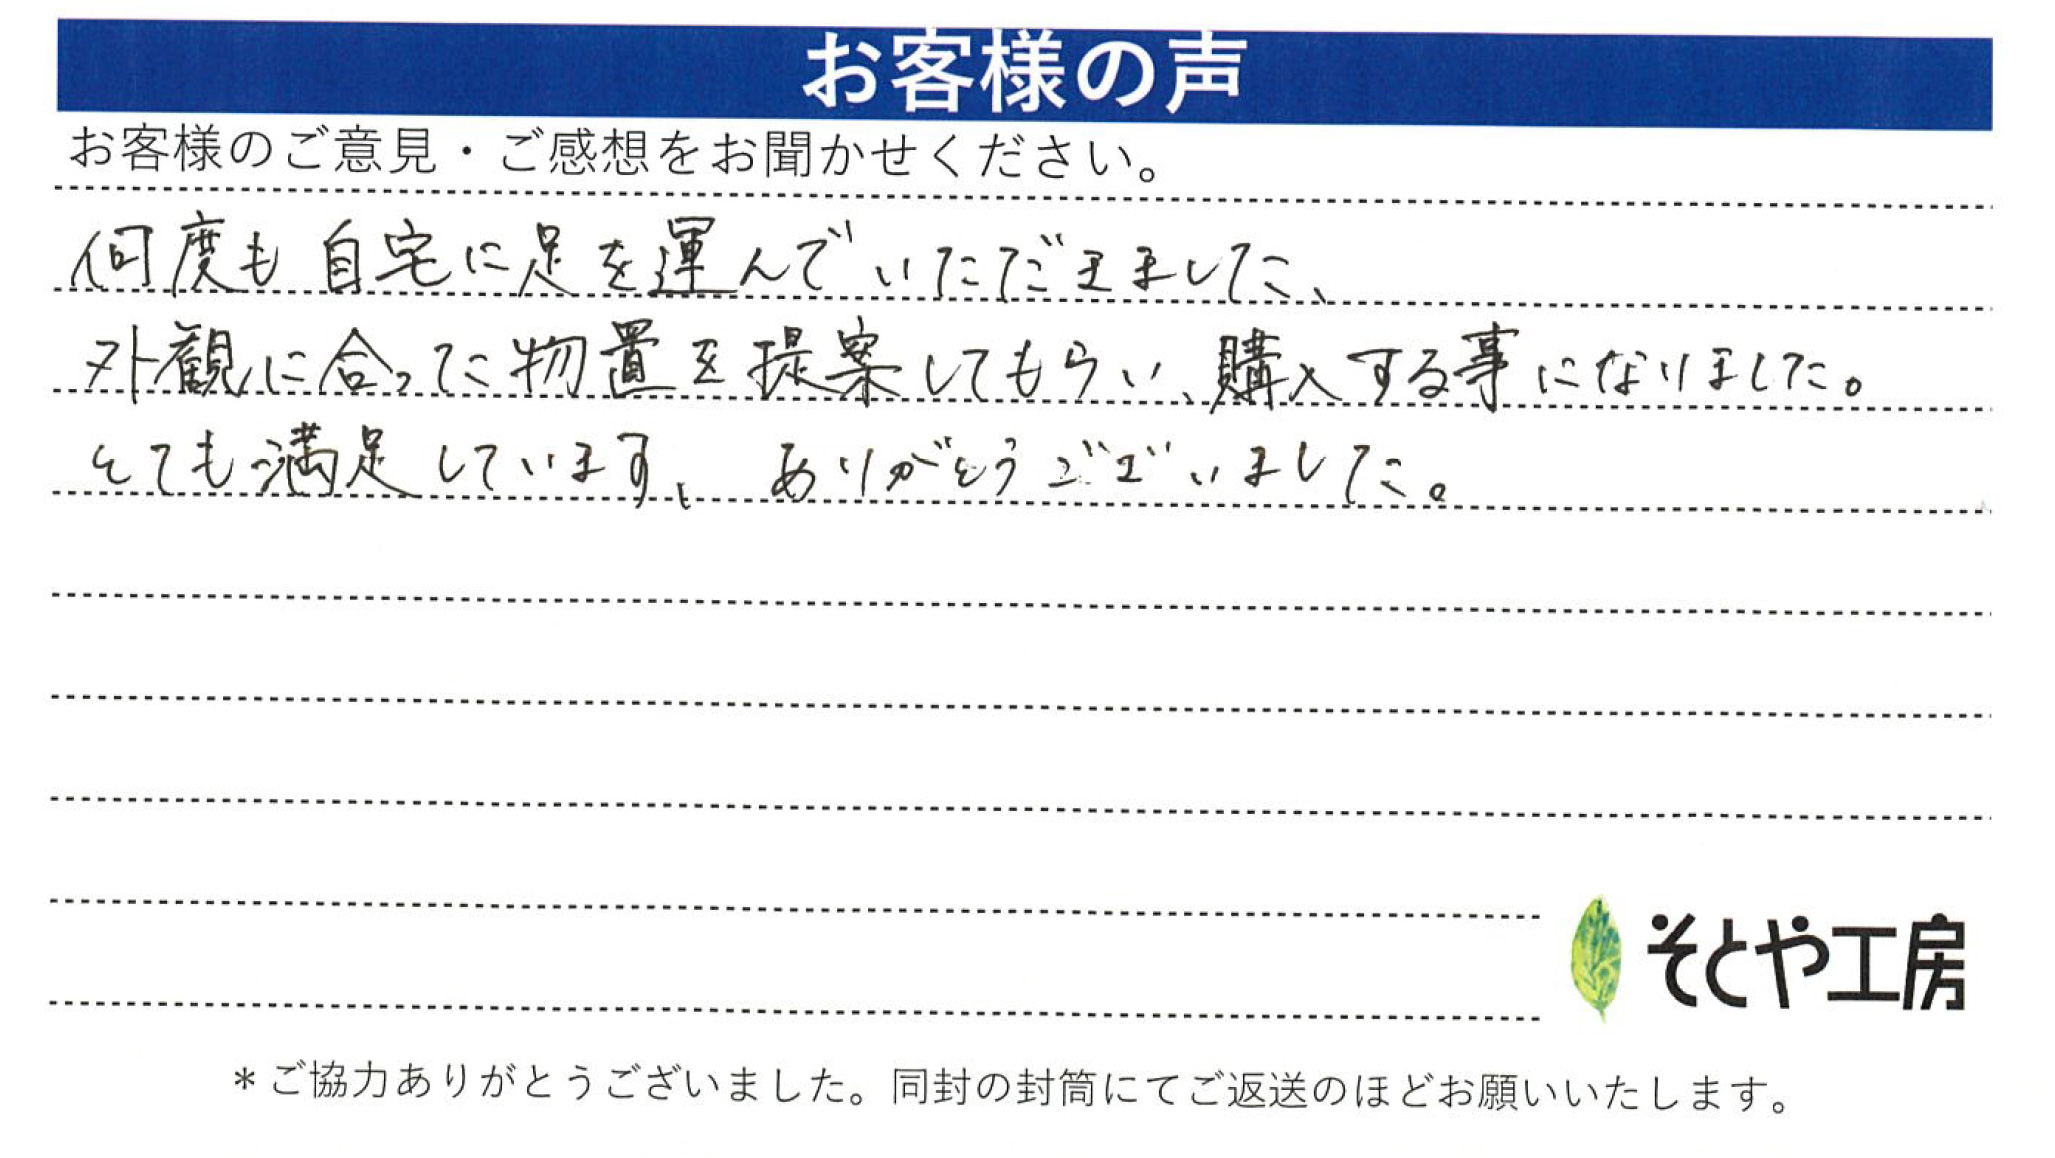 お客様の声
お客様のご意見・ご感想をお聞かせください。
何度も自宅に足を運んでいただきました、
外観に合った物置を提案してもらい、購入する事になりました。
とても満足しています、ありがとうございました。
そとや工房
*ご協力ありがとうございました。同封の封筒にてご返送のほどお願いいたします。